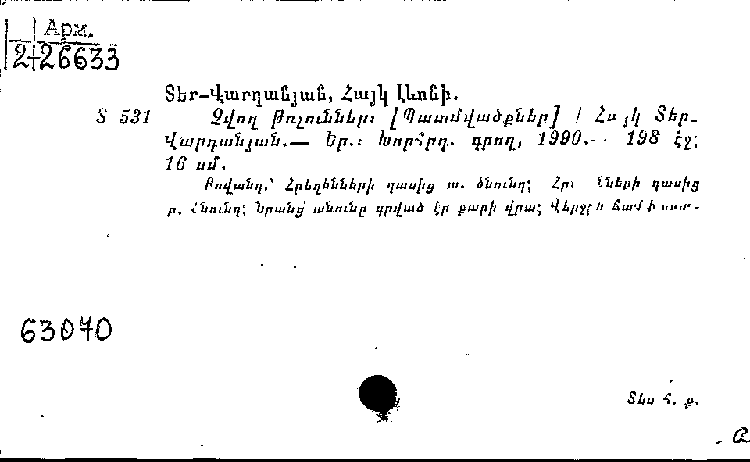 Арм.
2-26633
Տեր-Վարդանյան, Հայկ Լևոնի.
Տ 531 Չվող թռչուններ: [Պատմվածքներ] / Հայկ Տեր-
Վարդանյան.— Եր.: Խորհրդ. գրող, 1990.— 198 էջ;
16 սմ.
Բովանդ.՝ Հրեղենների դասից ա. ծնունդ; Հրեղենների դասից
բ. ծնունդ; Նրանց անունը գրված էր քարի վրա; Վերջին
63070
Տես հ. ք.